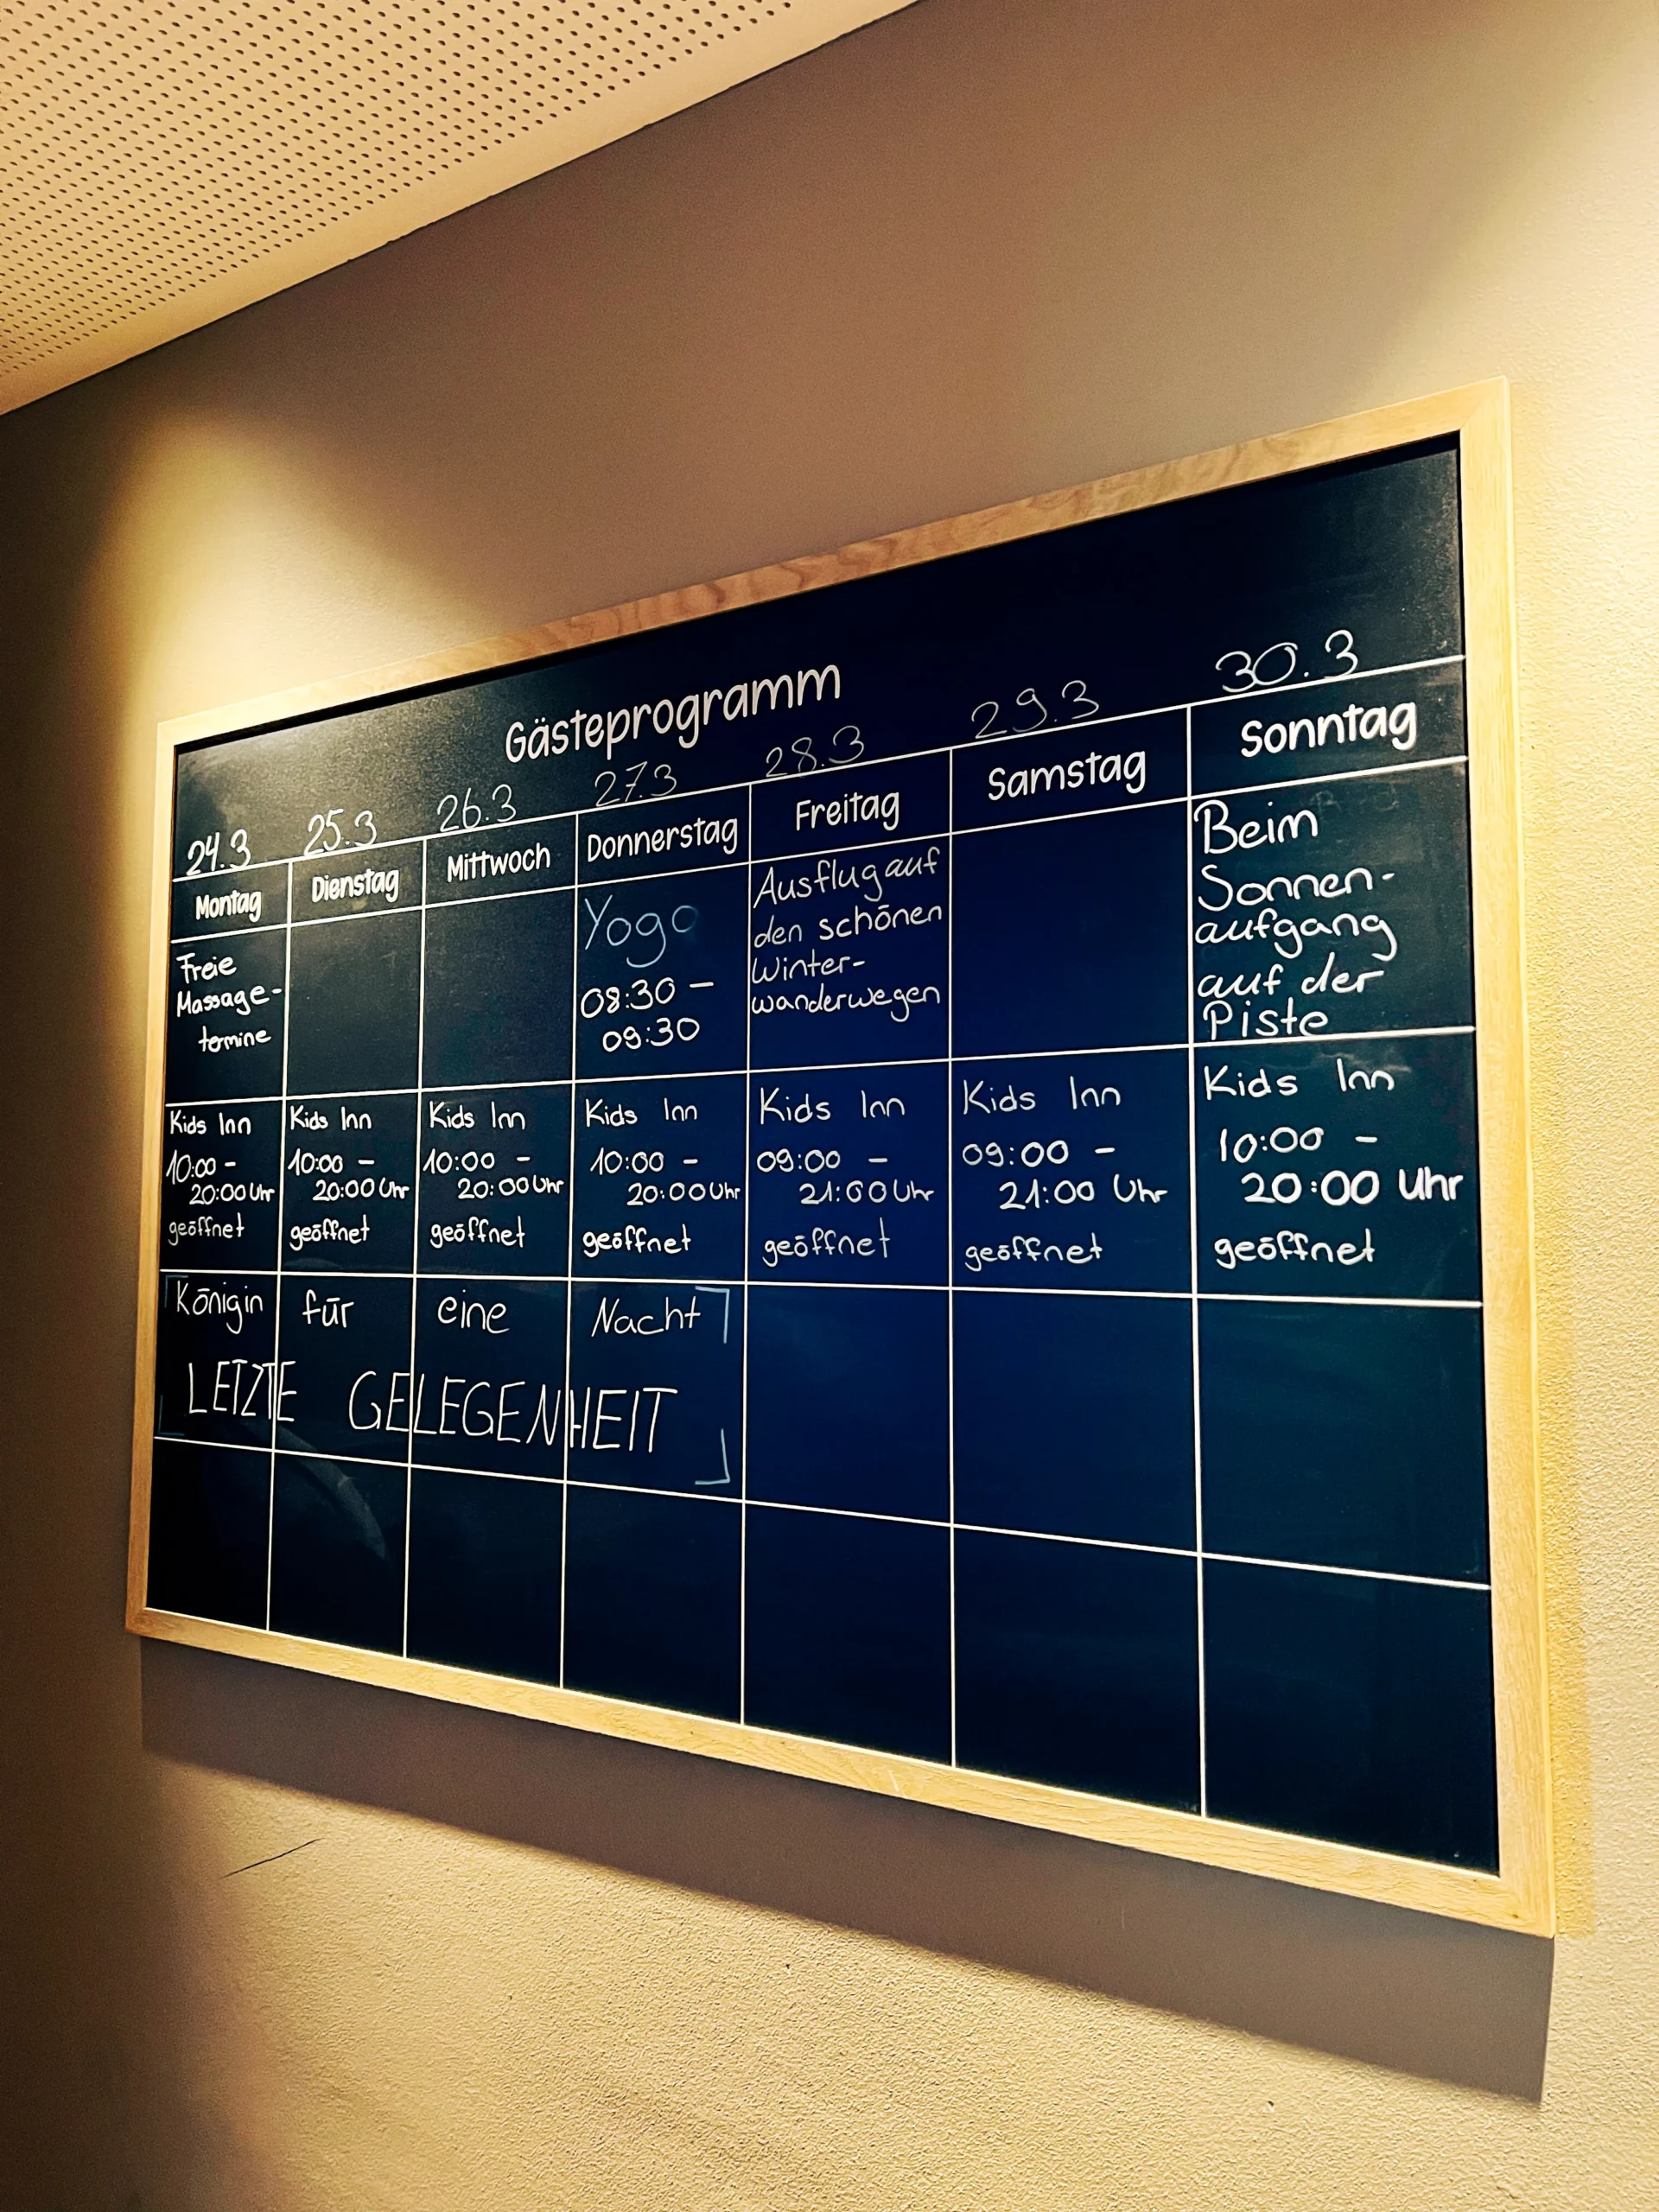 Gästeprogramm
24.3 25.3 26.3 27.3 28.3 29.3 30.3
Montag Dienstag Mittwoch Donnerstag Freitag Samstag Sonntag
Freie
Massage-
termine
Yoga
08:30 –
09:30
Ausflug auf
den schönen
Winter-
wanderwegen
Beim
Sonnen-
aufgang
auf der
Piste
Kids Inn
10:00 –
20:00 Uhr
geöffnet
Kids Inn
10:00 –
20:00 Uhr
geöffnet
Kids Inn
10:00 –
20:00 Uhr
geöffnet
Kids Inn
10:00 –
20:00 Uhr
geöffnet
Kids Inn
09:00 –
21:00 Uhr
geöffnet
Kids Inn
09:00 –
21:00 Uhr
geöffnet
Kids Inn
10:00 –
20:00 Uhr
geöffnet
Königin für eine Nacht
LETZTE GELEGENHEIT